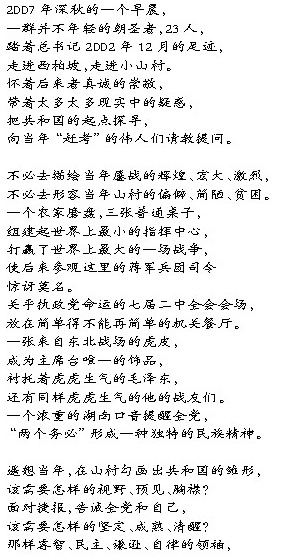 2007年深秋的一个早晨,
一群并不年轻的朝圣者,23人,
踏着总书记2002年12月的足迹,
走进西柏坡,走进小山村。
怀着后来者真诚的崇敬,
带着太多太多现实中的疑惑,
把共和国的起点探寻,
向当年“赶考”的伟人们请教提问。
不必去描绘当年鏖战的辉煌、宏大、激烈,
不必去形容当年山村的偏僻、简陋、贫困。
一个农家磨盘,三张普通桌子,
组建起世界上最小的指挥中心,
打赢了世界上最大的一场战争,
使后来参观这里的蒋军兵团司令
惊讶莫名。
关乎执政党命运的七届二中全会会场,
放在简单得不能再简单的机关餐厅。
一张来自东北战场的虎皮,
成为主席台唯一的饰品,
衬托着虎虎生气的毛泽东,
还有同样虎虎生气的他的战友们。
一个浓重的湖南口音提醒全党,
“两个务必”形成一种独特的民族精神。
遥想当年,在山村勾画出共和国的雏形,
该需要怎样的视野、预见、胸襟?
面对捷报,告诫全党和自己,
该需要怎样的坚定、成熟、清醒?
那样睿智、民主、谦逊、自律的领袖,